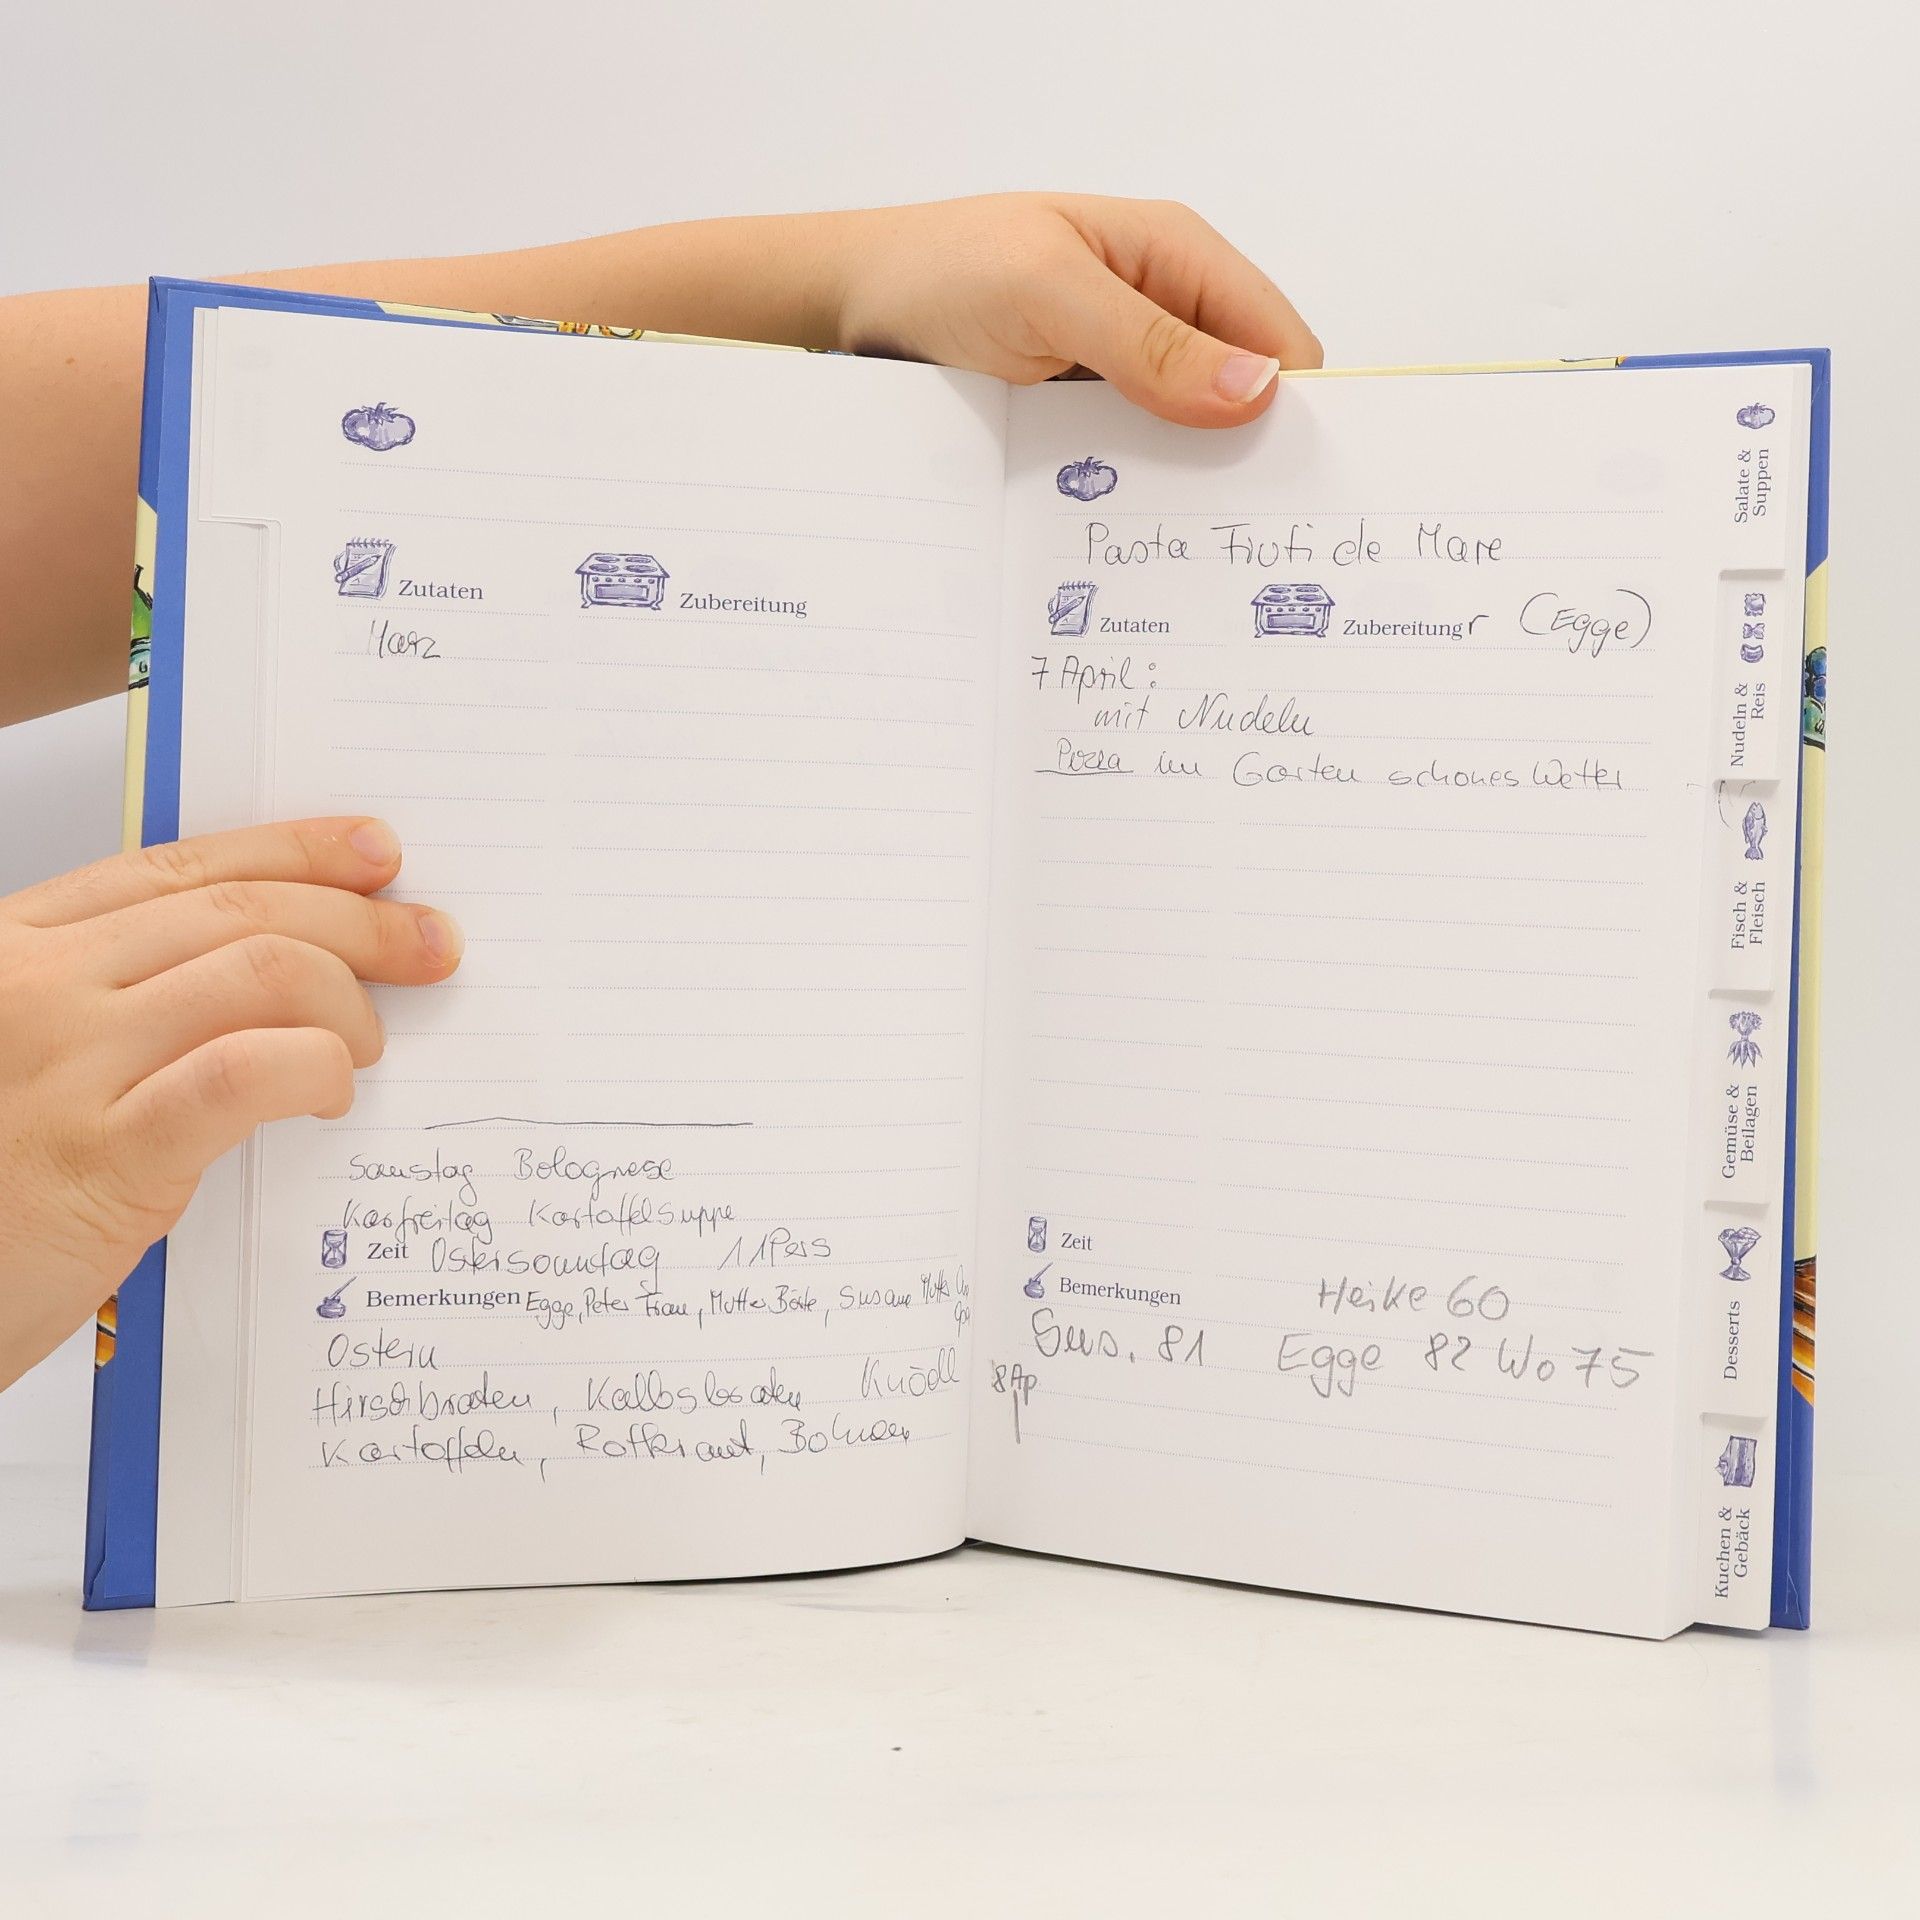 Zutaten Zubereitung
März
Samstag Bolognese
Karfreitag Kartoffelsuppe
Zeit Ostersonntag 11Pers
Bemerkungen Egge, Peter Frau, Mutter, Susane Mutter
Ostern
Hirschbraten, Kalbsbraten Knödl
Kartoffeln, Rotkraut, Bohnen
Pasta Fruti de Mare
Zutaten Zubereitung (Egge)
7 April:
mit Nudeln
Pizza im Garten schönes Wetter
Zeit
Bemerkungen Heike 60
Sus. 81 Egge 82 Wo 75
8 Ap
Salate &
Suppen
Nudeln &
Reis
Fisch &
Fleisch
Gemüse &
Beilagen
Desserts
Kuchen &
Gebäck